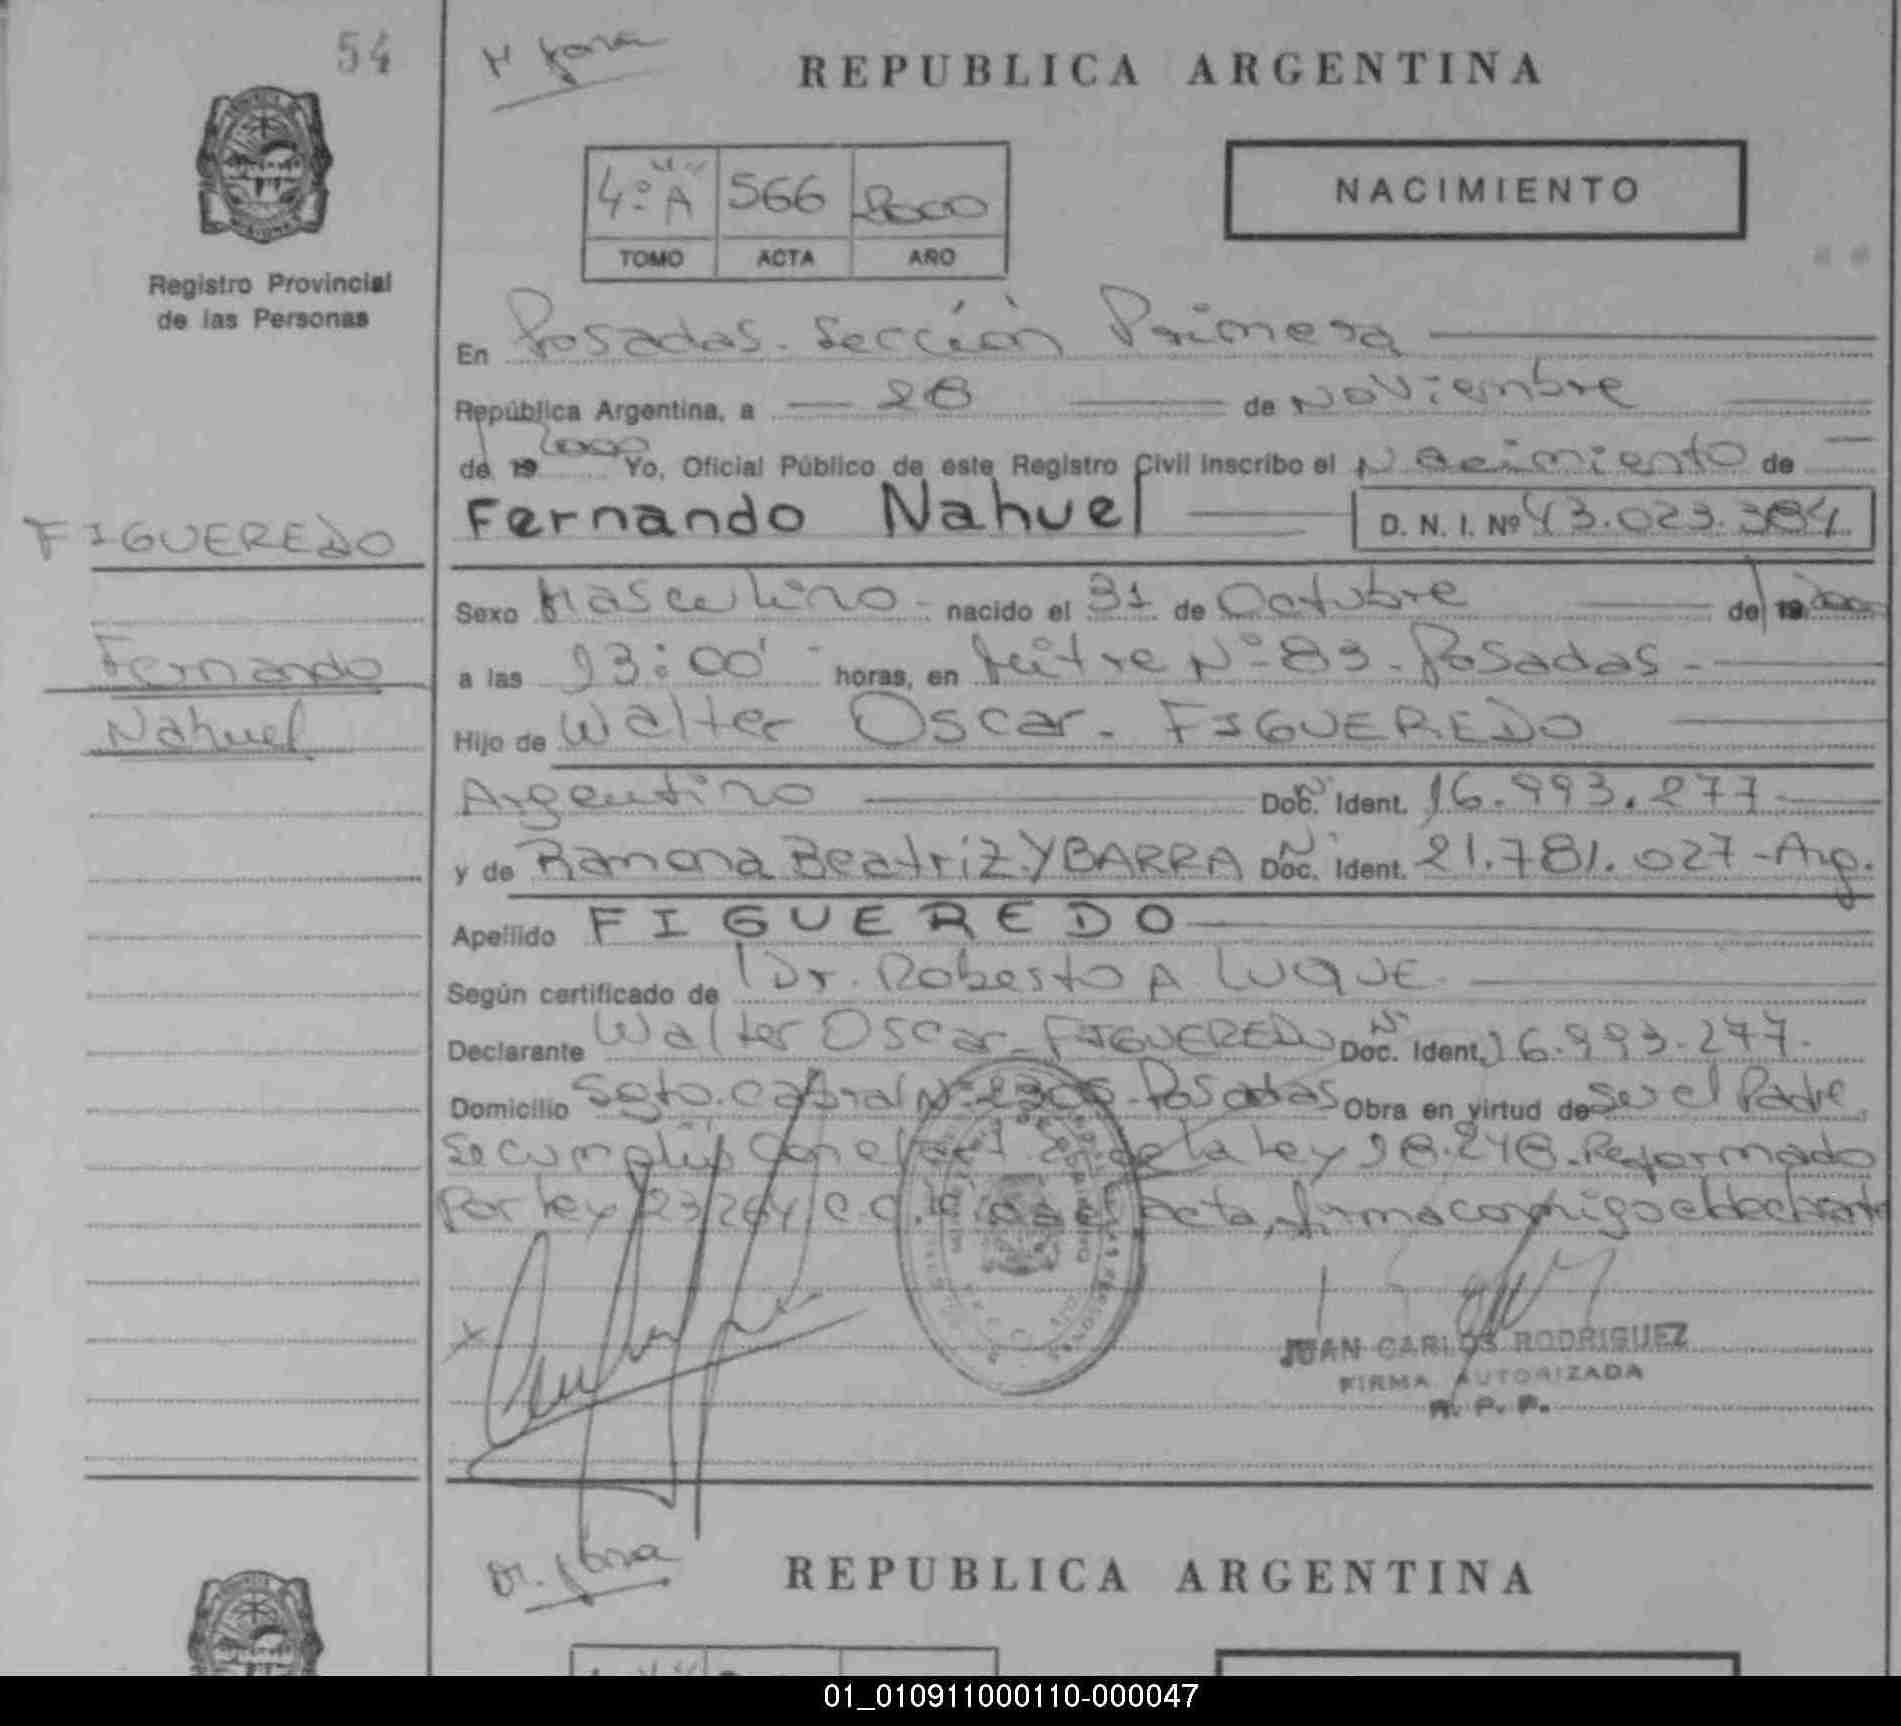 54
REPUBLICA ARGENTINA
4º A 566 2000
TOMO ACTA AÑO
NACIMIENTO
Registro Provincial
de las Personas
En Posadas. Sección Primera
República Argentina, a 28 de Noviembre
de 19 2000 Yo, Oficial Público de este Registro Civil inscribo el Nacimiento de
FIGUEREDO
Fernando Nahuel D. N. I. Nº 43.023.384
Sexo Masculino - nacido el 31 de Octubre de 19 2000
Fernando
a las 13:00' horas, en Mitre Nº 83 - Posadas -
Nahuel
Hijo de Walter Oscar - FIGUEREDO
Argentino Doc. Ident. 16.993.277
y de Ramona Beatriz YBARRA Doc. Ident. 21.781.027 - Arg.
Apellido FIGUEREDO
Según certificado de Dr. Roberto A LUQUE
Declarante Walter Oscar - FIGUEREDO Doc. Ident. 16.993.277.
Domicilio Sgto. Cabral Nº 2306 - Posadas Obra en virtud de ser el Padre
se cumplió con el de la Ley 18.248. Reformado
Por Ley 23/264 Acta, firma conmigo el declarante
JUAN CARLOS RODRIGUEZ
FIRMA AUTORIZADA
R. P. P.
REPUBLICA ARGENTINA
01_010911000110-000047